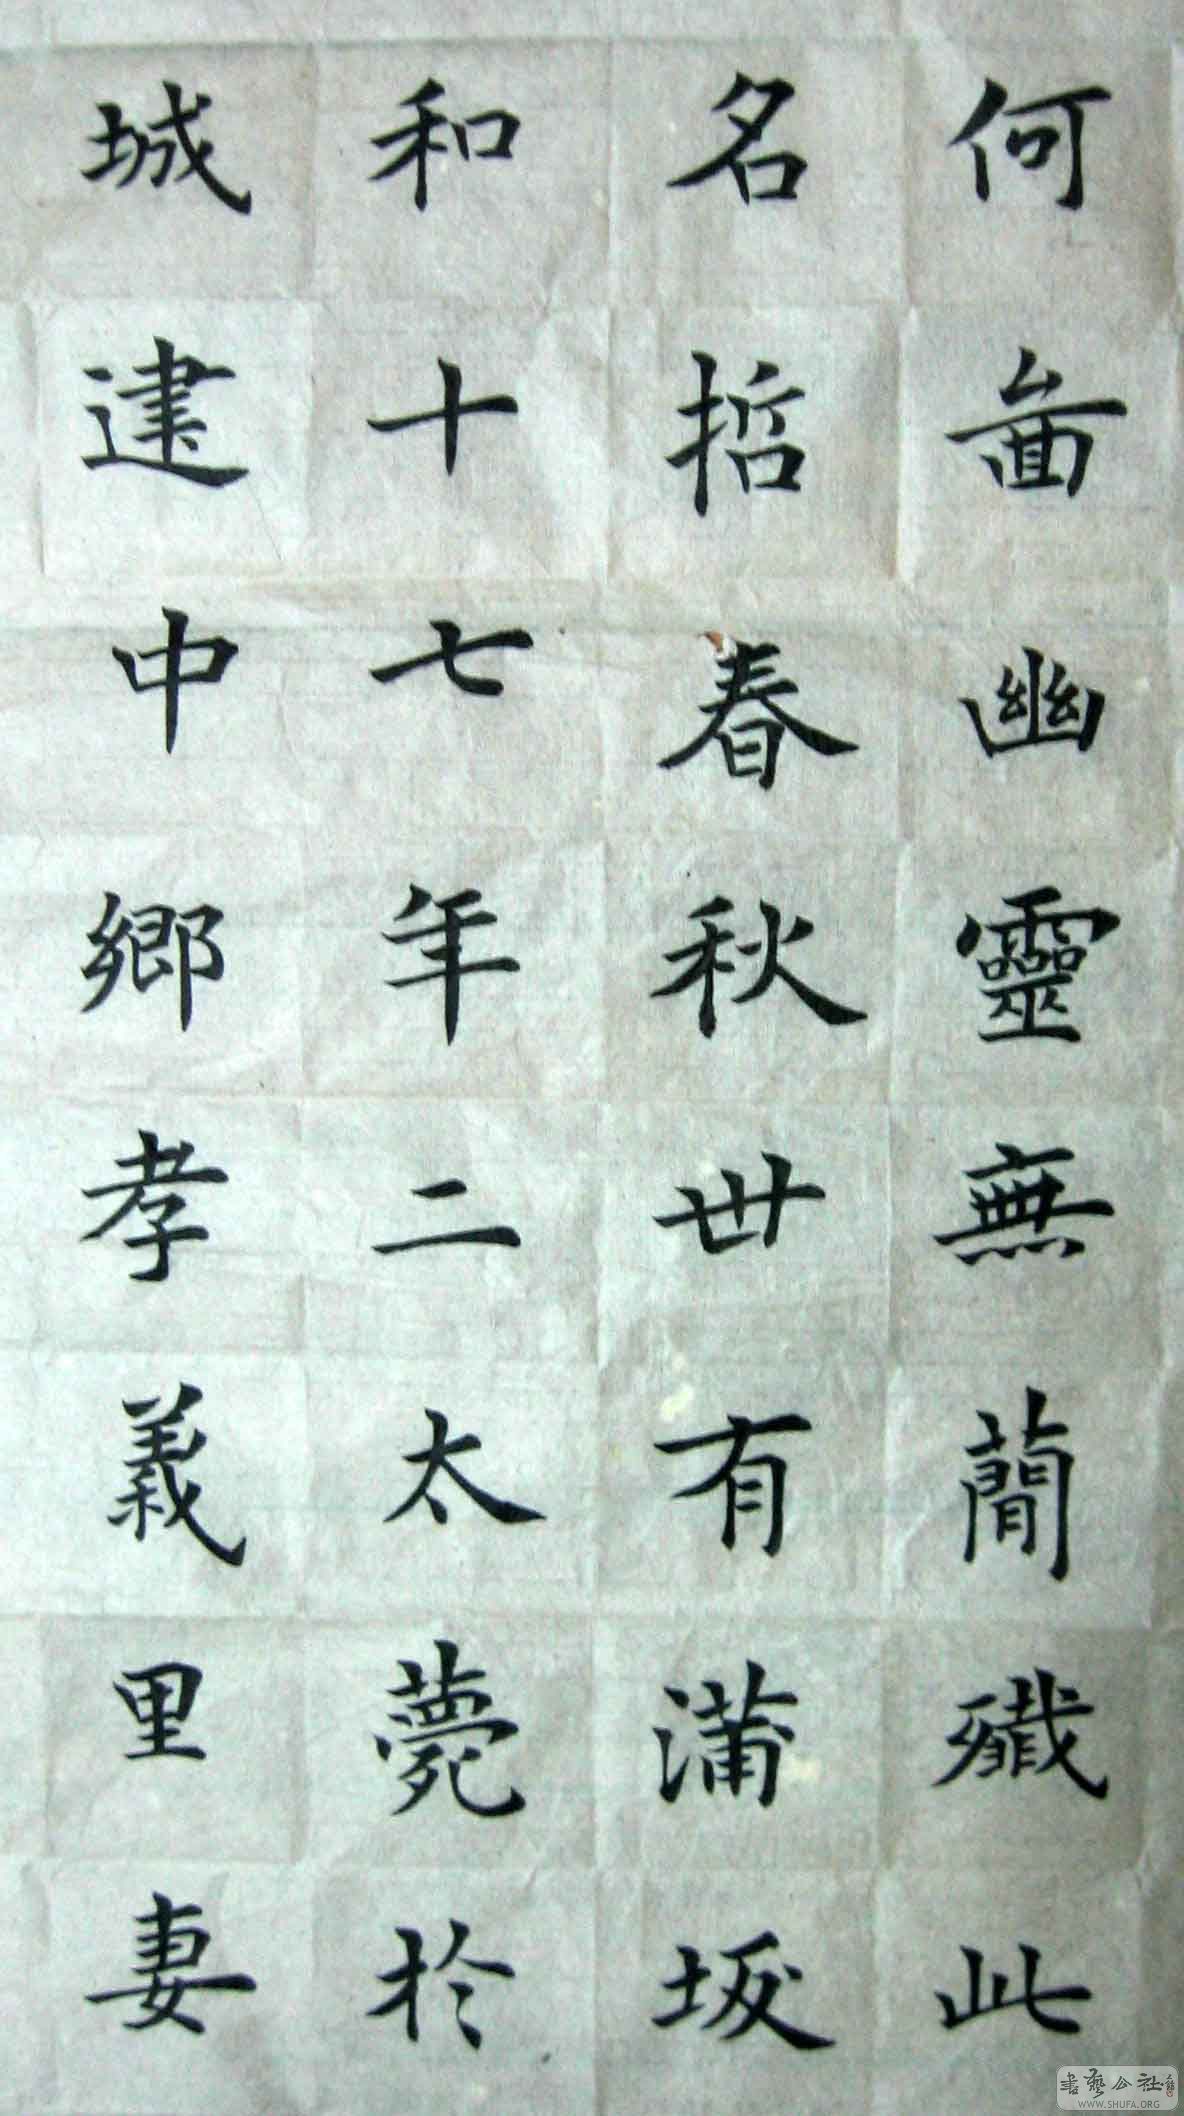 何啚幽靈無蕳殲此
名哲春秋卅有蒲坂
和十七年二太薨於
城建中鄉孝義里妻
書藝公社
WWW.SHUFA.ORG